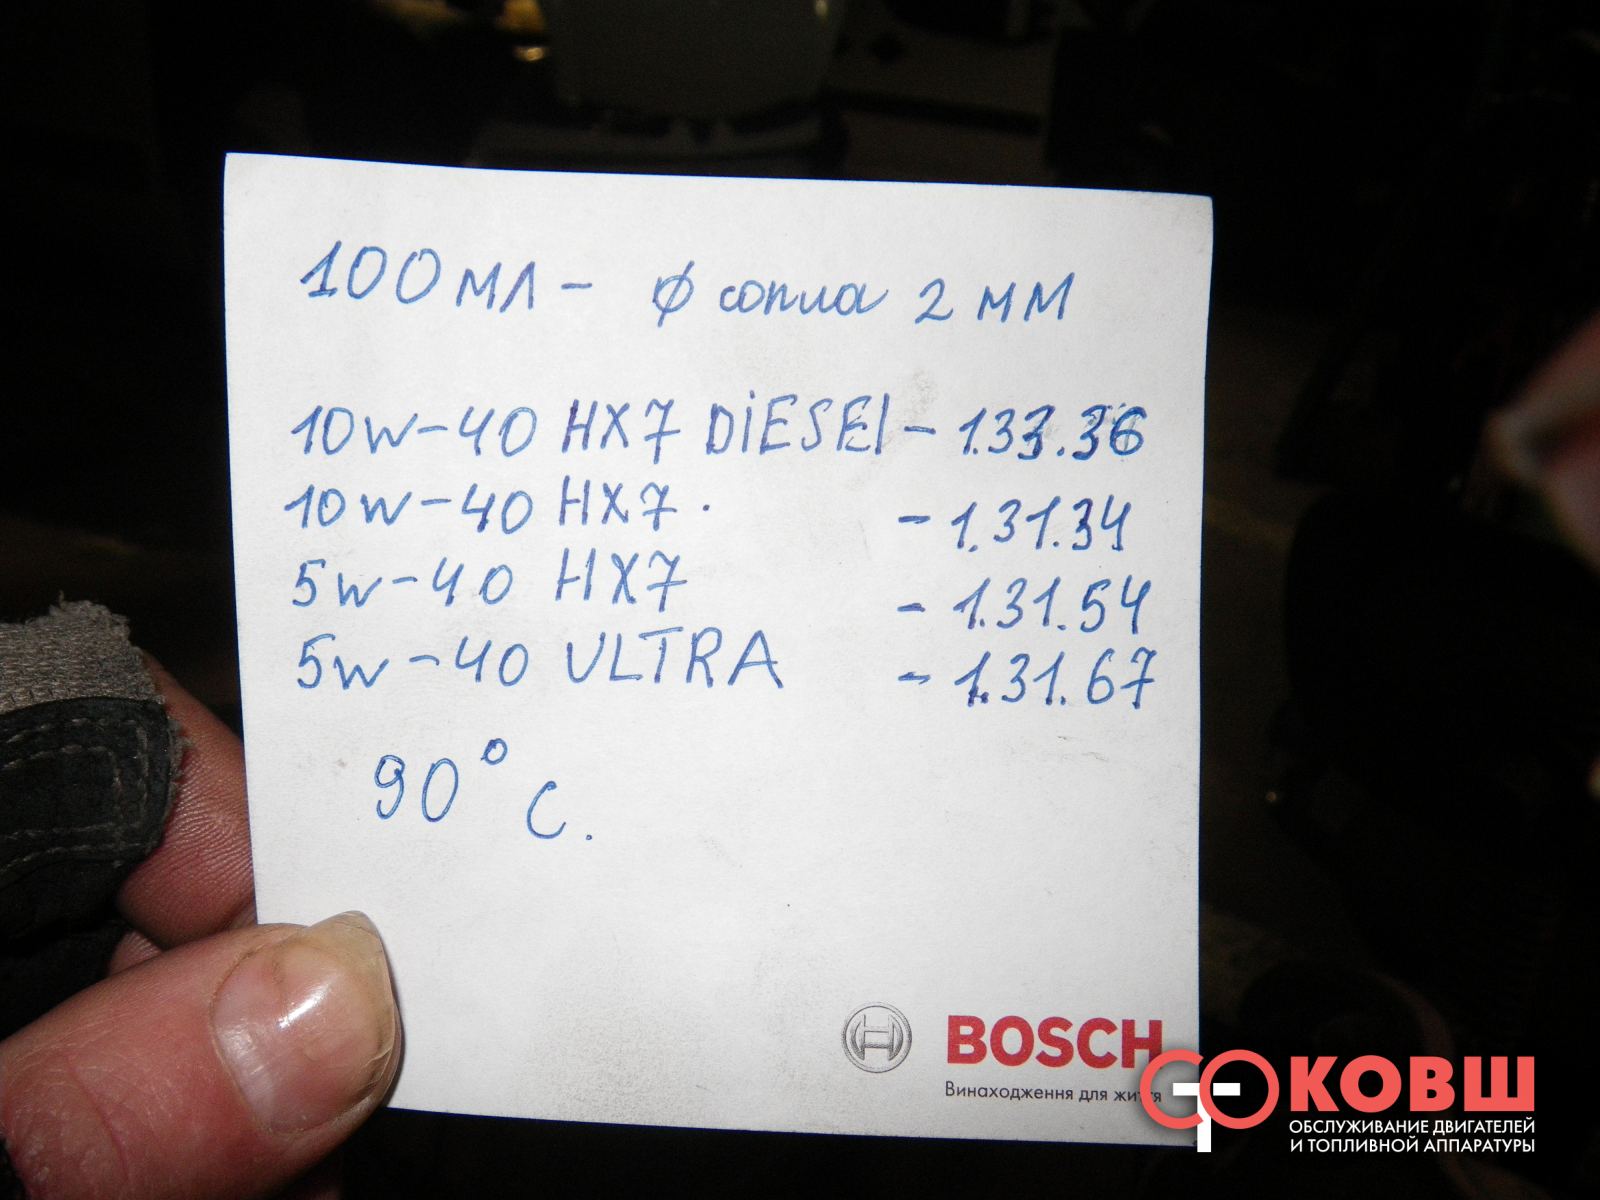 100 мл - ф сопла 2 мм
10w-40 HX7 DiESEl - 1.33.36
10w-40 HX7. - 1.31.34
5w-40 HX7 - 1.31.54
5w-40 ULTRA - 1.31.67
90° C.
BOSCH
Винаходження для життя
КОВШ
ОБСЛУЖИВАНИЕ ДВИГАТЕЛЕЙ
И ТОПЛИВНОЙ АППАРАТУРЫ